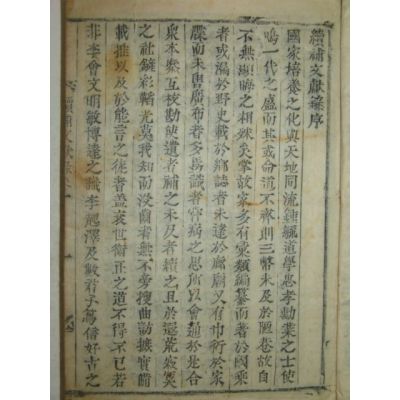 續補文獻錄序
國家培養之化與天地同流鍾毓道學忠孝勳業之士使
鳴一代之盛而其或命道不齊則三幣未及於陋巷故自
不無顯晦之相殊矣掌故家多有彙類編纂而著於國乘
者或漏於野史載於鄕誌者未達於廊廟又有巾衍於家
牒而未曾廣布者多爲識者齎病之思所以會通於是合
衆本叅互校勘使遺者補之未及者續之且於遐荒寂寞
之社韜彩鞱光莫我知而沒齒者無不旁搜曲訪摭實備
載推以及於能言之徒者盖衰世衛正之道不得不已若
非李會文明敏博達之識李起澤及數君子篤信好古之